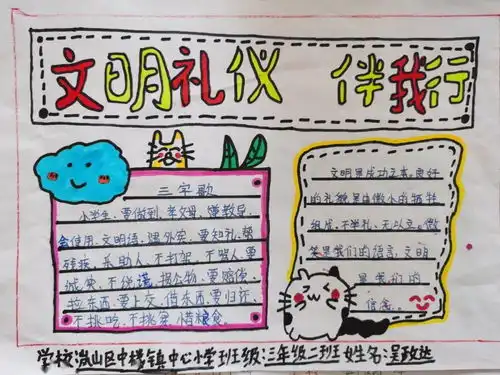 文明礼仪 伴我行
三字歌
小学生、要做到、孝父母、懂教导、
会使用、文明语、遇外宾、要知礼、帮
残疾、多助人、不打架、不骂人、要
诚实、不经谎、损公物、要赔偿、
拾东西、要上交、借东西、要归还、
不挑吃、不挑穿、惜粮食。
文明是成功之本。良好
的礼貌是由微小的牺牲
组成，不学礼、无以立。微
笑是我们的语言，文明
是我们的
信念。
学校:洪山区中楼镇中心小学 班级:三年级二班 姓名:吴政达